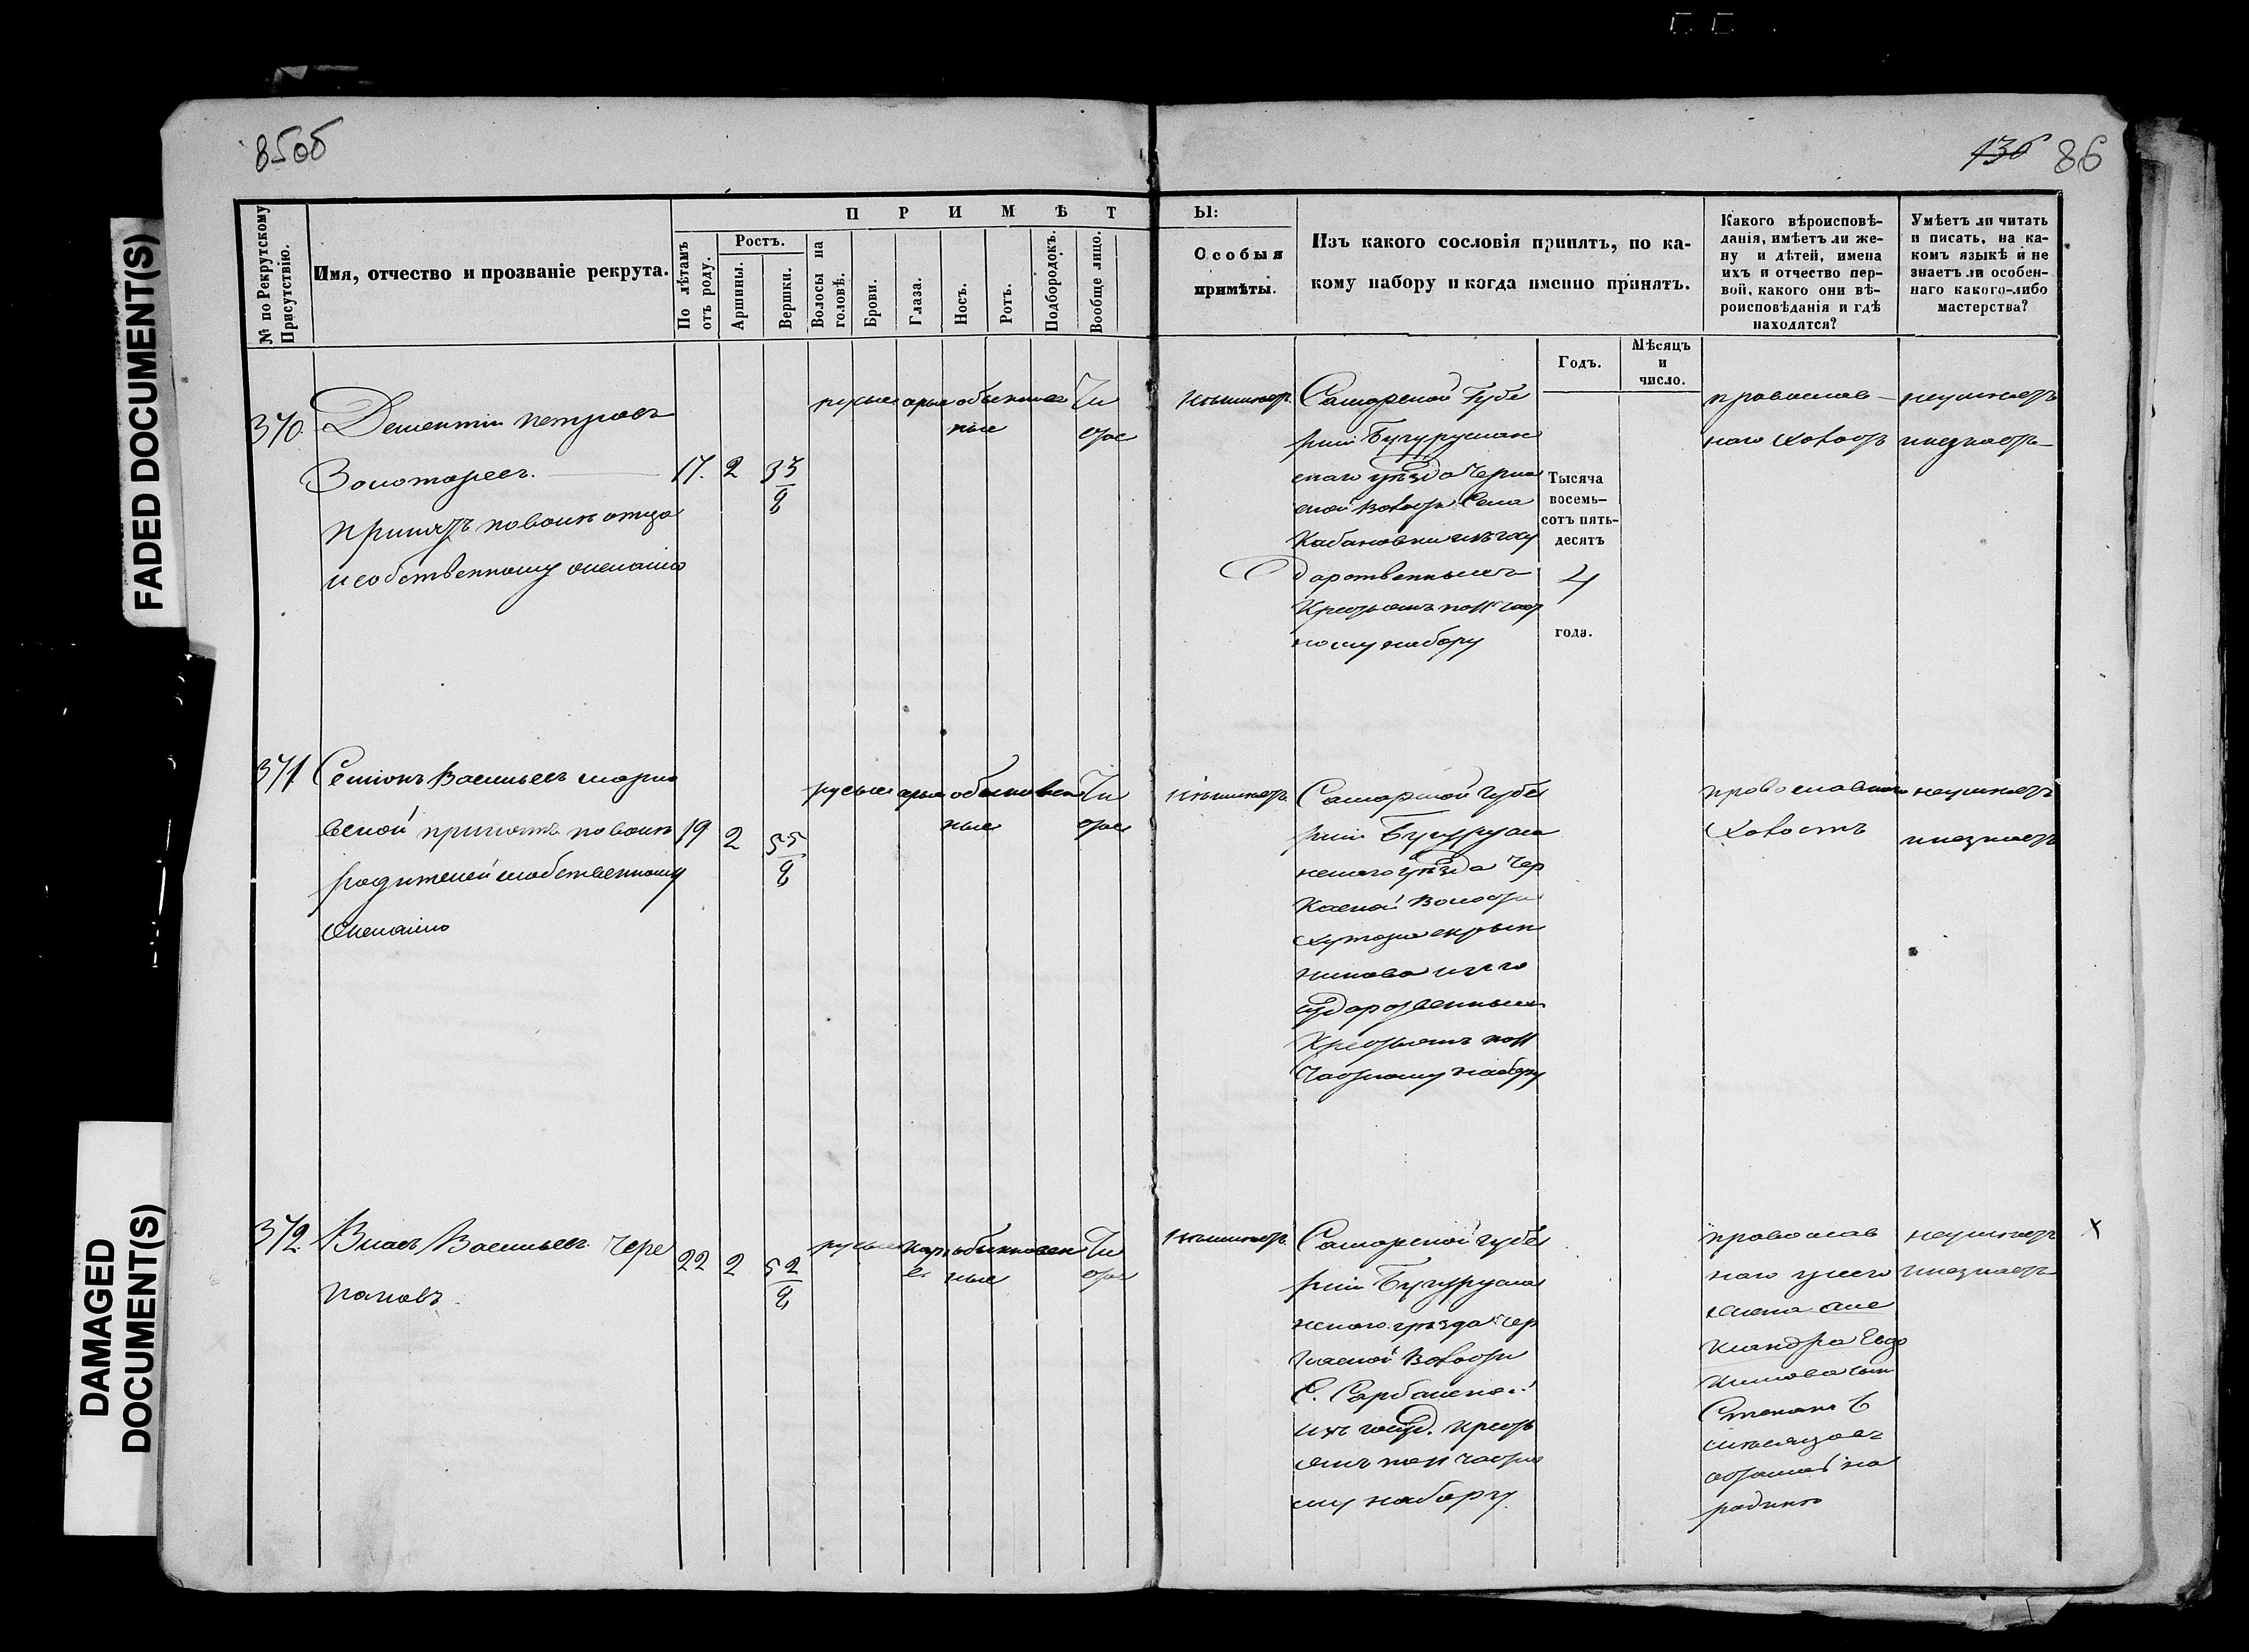 FADED DOCUMENT(S)
DAMAGED
DOCUMENT(S)
85об
136 86
№ по Рекрутскому
Присутствію.
Имя, отчество и прозваніе рекрута.
П Р И М Ѣ Т
Ы:
По лѣтамъ
отъ роду.
Ростъ.
Аршины.
Вершки.
Волосы на
головѣ.
Брови.
Глаза.
Носъ.
Ротъ.
Подбородокъ.
Вообще лицо.
Особыя
примѣты.
Изъ какого сословія принятъ, по ка-
кому набору и когда именно принятъ.
Годъ.
Мѣсяцъ
и
число.
Какого вѣроисповѣ-
данія, имѣетъ ли же-
ну и дѣтей, имена
ихъ и отчество пер-
вой, какого они вѣ-
роисповѣданія и гдѣ
находятся?
Умѣетъ ли читать
и писать, на ка-
комъ языкѣ и не
знаетъ ли особен-
наго какого-либо
мастерства?
370.
Дементій Петровъ
Золотаревъ.
принятъ по волѣ отца
и собственному желанію
17. 2 3 5/8
русые сѣрые обыкновен
ные
Чи
стое
Неимѣетъ.
Самарской Губе
рніи Бугуруслан
скаго уѣзда Черка
ской Волости Села
Кабановки изъ госу
дарственныхъ
Крестьянъ по 11 част
ному набору
Тысяча
восемь-
сотъ пять-
десятъ
4
года.
православ
наго холостъ
неумѣетъ
и незнаетъ
371
Семіонъ Васильевъ
принятъ по волѣ
родителей и собственному
желанію
19 2 5 5/8
русые сѣрые обыкновен
ные
Чи
стое
Неимѣетъ
Самарской губе
рніи Бугурусла
нскаго уѣзда Чер
каской Волости
хутора скрып
никова изъ го
сударственныхъ
Крестьянъ по 11
Частному набору
православнаго
Холостъ
неумѣетъ
и незнаетъ
372
Власъ Васильевъ Чере
пановъ
22 2 5 2/8
русые карі обыкновен
е ные
Чи
стое
Неимѣетъ
Самарской губе
рніи Бугурусла
нскаго уѣзда Чер
каской Волости
С. Сарбайской
изъ госуд. кресть
янъ по 11 частно
му набору.
православ
наго у него
жена Але
ксандра Евдо
кимова сынъ
Степанъ 6
мѣсяцовъ
остались на
родинѣ
неумѣетъ
и незнаетъ
х